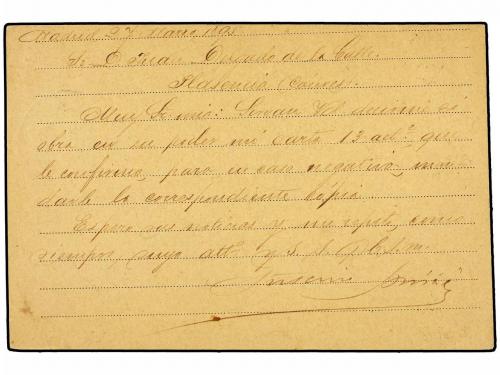 Madrid 27 Marzo 189
Sr. D. Juan Delgado de la Calle
Plasencia (Cáceres)
Muy Sr. mio: Sírvase Vd. decirme si
obra en su poder mi carta 13 actl. que
le confirmo, para en caso negativo, man
darle la correspondiente copia
Espero sus noticias y me repito, como
siempre, suyo atto. y S. S. q. b. s. m.